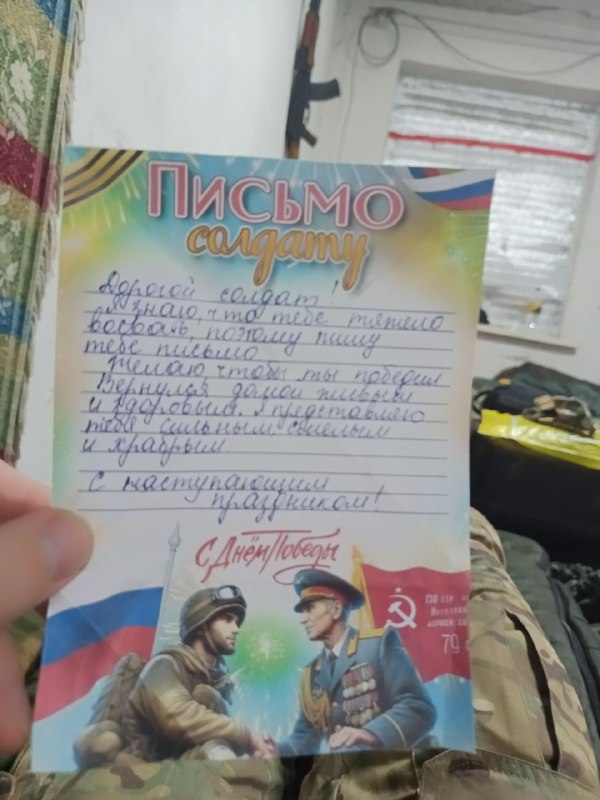 ПИСЬМО
солдату
Дорогой солдат!
Я знаю, что тебе тяжело
воевать, поэтому пишу
тебе письмо
Желаю чтобы ты победил
Вернулся домой живым
и здоровым. Я представляю
тебя сильным смелым
и храбрым.
С наступающим
праздником!
С Днём Победы
150 стр
79